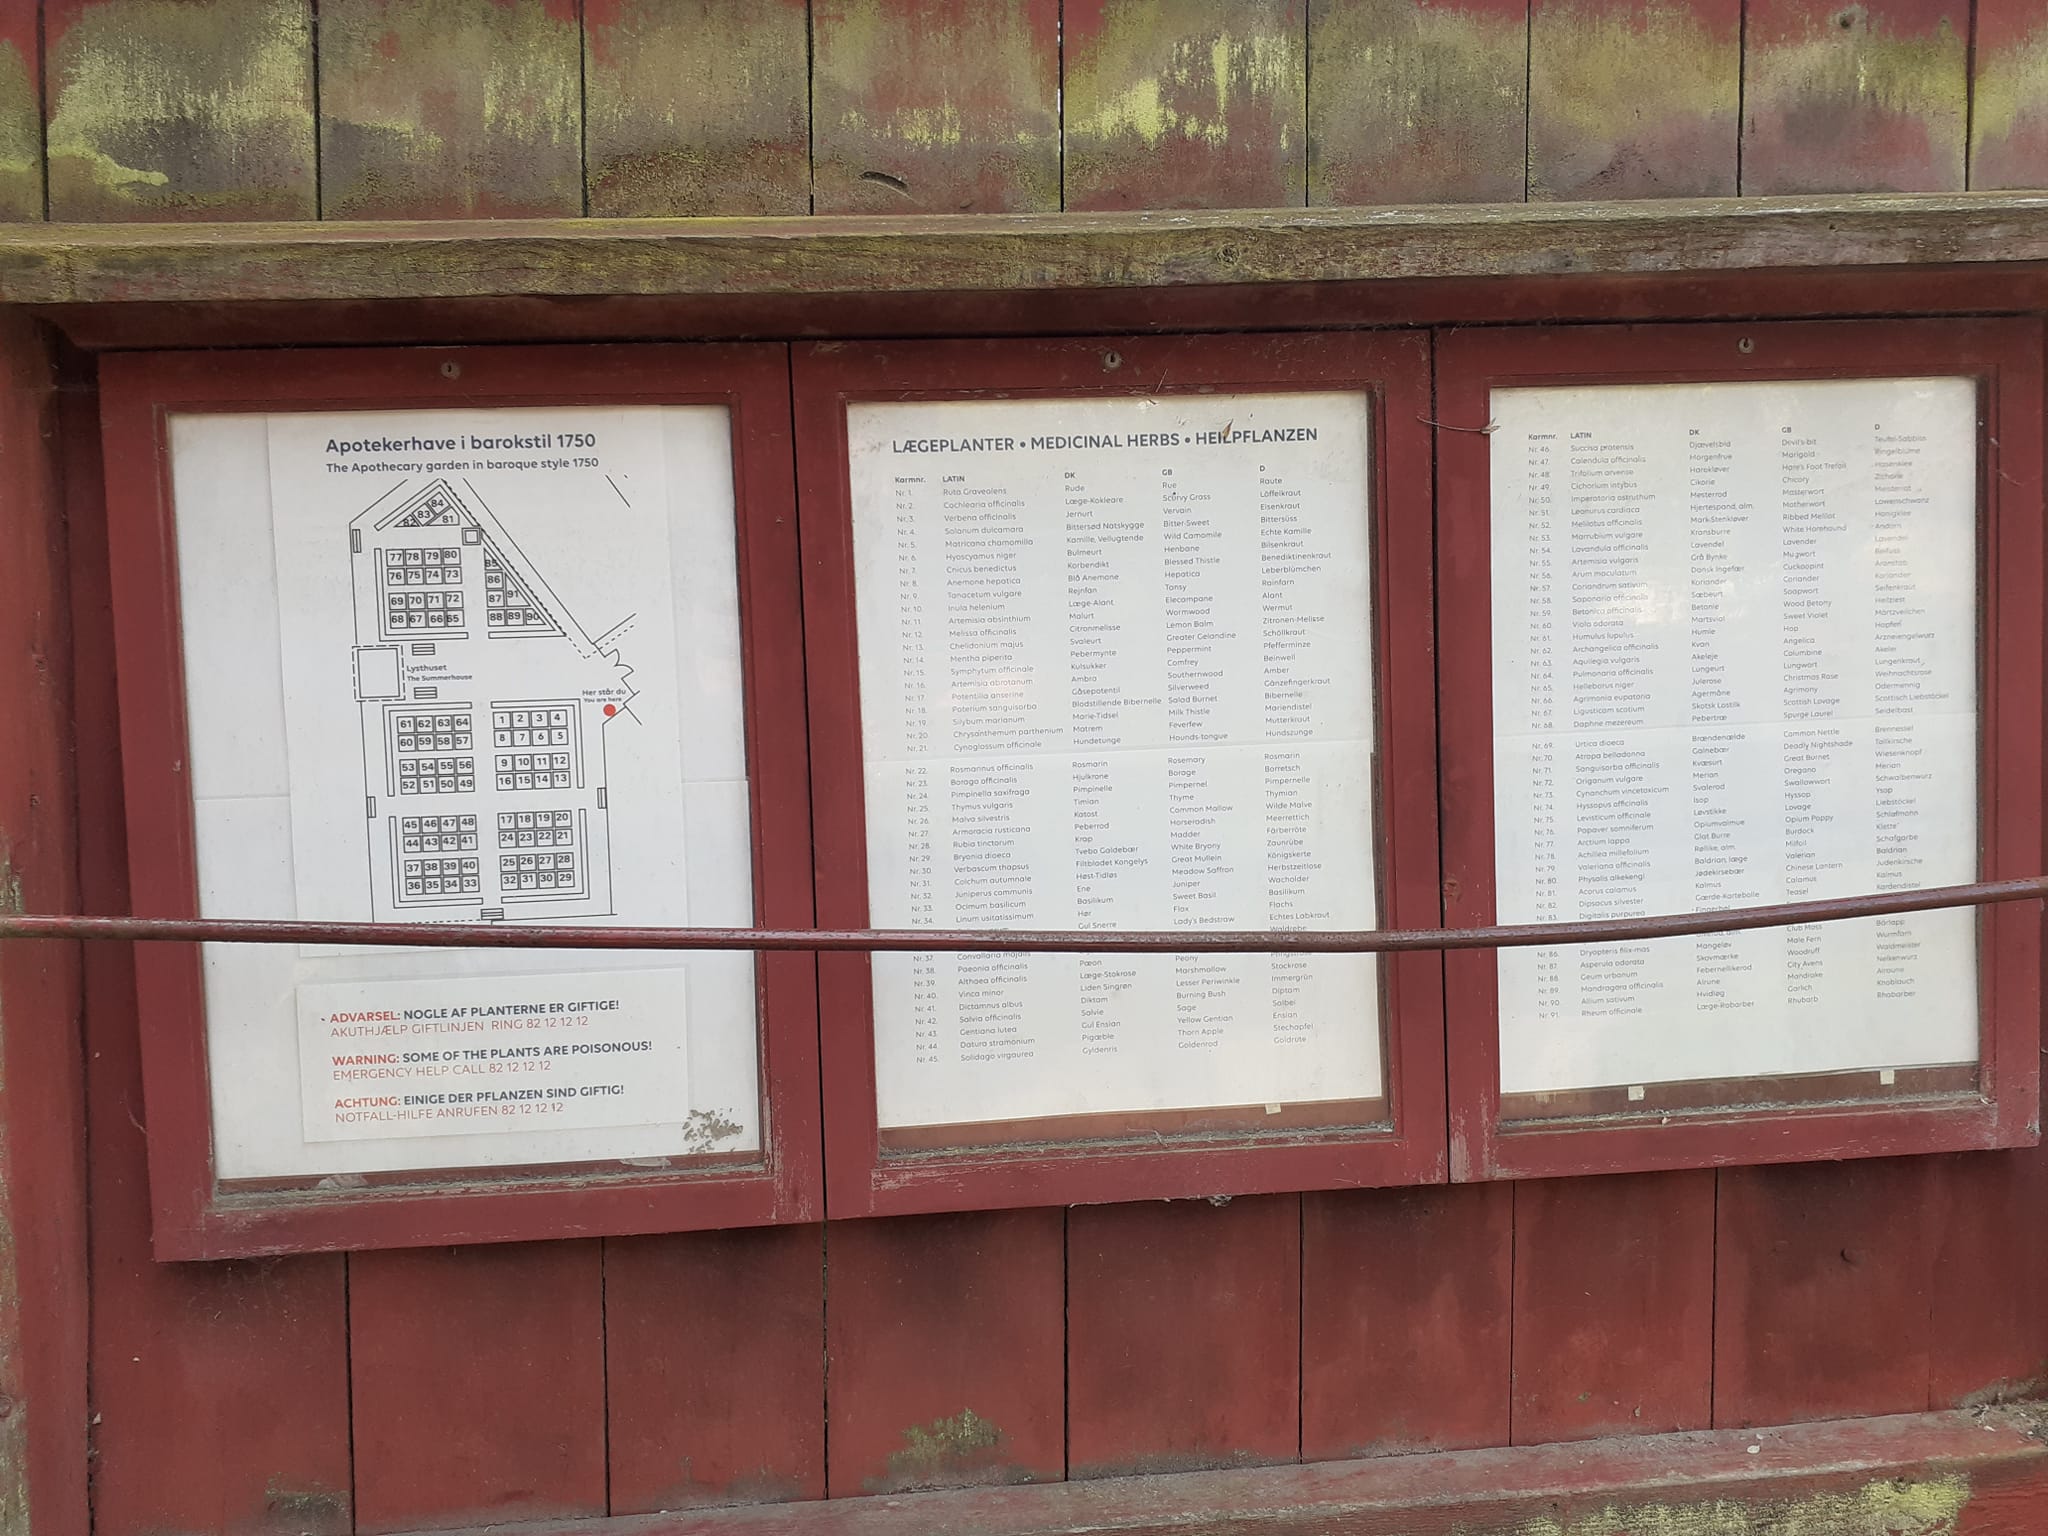 Apotekerhave i barokstil 1750
The Apothecary garden in baroque style 1750
84
82 83 81
77 78 79 80
76 75 74 73
69 70 71 72
68 67 66 65
85
86
87 91
88 89 90
Lysthuset
The Summerhouse
Her står du
You are here
61 62 63 64
60 59 58 57
53 54 55 56
52 51 50 49
1 2 3 4
8 7 6 5
9 10 11 12
16 15 14 13
45 46 47 48
44 43 42 41
37 38 39 40
36 35 34 33
17 18 19 20
24 23 22 21
25 26 27 28
32 31 30 29
ADVARSEL: NOGLE AF PLANTERNE ER GIFTIGE!
AKUTHJÆLP GIFTLINJEN RING 82 12 12 12
WARNING: SOME OF THE PLANTS ARE POISONOUS!
EMERGENCY HELP CALL 82 12 12 12
ACHTUNG: EINIGE DER PFLANZEN SIND GIFTIG!
NOTFALL-HILFE ANRUFEN 82 12 12 12
LÆGEPLANTER • MEDICINAL HERBS • HEILPFLANZEN
Karmnr. LATIN DK GB D
Nr. 1. Ruta Graveolens Rude Rue Raute
Nr. 2. Cochlearia officinalis Læge-Kokleare Scurvy Grass Löffelkraut
Nr. 3. Verbena officinalis Jernurt Vervain Eisenkraut
Nr. 4. Solanum dulcamara Bittersød Natskygge Bitter-Sweet Bittersüss
Nr. 5. Matricana chamomilla Kamille, Vellugtende Wild Camomile Echte Kamille
Nr. 6. Hyoscyamus niger Bulmeurt Henbane Bilsenkraut
Nr. 7. Cnicus benedictus Korbendikt Blessed Thistle Benediktinenkraut
Nr. 8. Anemone hepatica Blå Anemone Hepatica Leberblümchen
Nr. 9. Tanacetum vulgare Rejnfan Tansy Rainfarn
Nr. 10. Inula helenium Læge-Alant Elecampane Alant
Nr. 11. Artemisia absinthium Malurt Wormwood Wermut
Nr. 12. Melissa officinalis Citronmelisse Lemon Balm Zitronen-Melisse
Nr. 13. Chelidonium majus Svaleurt Greater Gelandine Schöllkraut
Nr. 14. Mentha piperita Pebermynte Peppermint Pfefferminze
Nr. 15. Symphytum officinale Kulsukker Comfrey Beinwell
Nr. 16. Artemisia abrotanum Ambra Southernwood Amber
Nr. 17. Potentilla anserine Gåsepotentil Silverweed Gänzefingerkraut
Nr. 18. Poterium sanguisorba Blodstillende Bibernelle Salad Burnet Bibernelle
Nr. 19. Silybum marianum Marie-Tidsel Milk Thistle Mariendistel
Nr. 20. Chrysanthemum parthenium Matrem Feverfew Mutterkraut
Nr. 21. Cynoglossum officinale Hundetunge Hounds-tongue Hundszunge
Nr. 22. Rosmarinus officinalis Rosmarin Rosemary Rosmarin
Nr. 23. Borago officinalis Hjulkrone Borage Borretsch
Nr. 24. Pimpinella saxifraga Pimpinelle Pimpernel Pimpernelle
Nr. 25. Thymus vulgaris Timian Thyme Thymian
Nr. 26. Malva silvestris Katost Common Mallow Wilde Malve
Nr. 27. Armoracia rusticana Peberrod Horseradish Meerrettich
Nr. 28. Rubia tinctorum Krap Madder Färberröte
Nr. 29. Bryonia dioeca Tvebo Galdebær White Bryony Zaunrübe
Nr. 30. Verbascum thapsus Filtbladet Kongelys Great Mullein Königskerte
Nr. 31. Colchum autumnale Høst-Tidløs Meadow Saffron Herbstzeitlose
Nr. 32. Juniperus communis Ene Juniper Wacholder
Nr. 33. Ocimum basilicum Basilikum Sweet Basil Basilikum
Nr. 34. Linum usitatissimum Hør Flax Flachs
Gul Snerre Lady's Bedstraw Echtes Labkraut
Waldrebe
Nr. 37. Convallaria majalis
Nr. 38. Paeonia officinalis Pæon Peony Pfingstrose
Nr. 39. Althaea officinalis Læge-Stokrose Marshmallow Stockrose
Nr. 40. Vinca minor Liden Singrøn Lesser Periwinkle Immergrün
Nr. 41. Dictamnus albus Diktam Burning Bush Diptam
Nr. 42. Salvia officinalis Salvie Sage Salbei
Nr. 43. Gentiana lutea Gul Ensian Yellow Gentian Ensian
Nr. 44 Datura stramonium Pigæble Thorn Apple Stechapfel
Nr. 45. Solidago virgaurea Gyldenris Goldenrod Goldrute
Karmnr. LATIN DK GB D
Nr. 46. Succisa pratensis Djævelsbid Devil's-bit Teufel-Sabbiss
Nr. 47. Calendula officinalis Morgenfrue Marigold Ringelblume
Nr. 48. Trifolium arvense Harekløver Hare's Foot Trefoil Hasenklee
Nr. 49. Cichorium intybus Cikorie Chicory Zichorie
Nr. 50. Imperatoria ostruthum Mesterrod Masterwort
Nr. 51. Leonurus cardiaca Hjertespand, alm. Motherwort Löwenschwanz
Nr. 52. Melilotus officinalis Mark-Stenkløver Ribbed Melilot Honigklee
Nr. 53. Marrubium vulgare Kransburre White Horehound Andorn
Nr. 54. Lavandula officinalis Lavendel Lavender Lavendel
Nr. 55. Artemisia vulgaris Grå Bynke Mugwort Beifuss
Nr. 56. Arum maculatum Dansk Ingefær Cuckoopint Aronstab
Nr. 57. Coriandrum sativum Koriander Coriander Koriander
Nr. 58. Saponaria officinalis Sæbeurt Soapwort Seifenkraut
Nr. 59. Betonica officinalis Betonie Wood Betony Heilziest
Nr. 60. Viola odorata Martsviol Sweet Violet Märtzveilchen
Nr. 61. Humulus lupulus Humle Hop Hopfen
Nr. 62. Archangelica officinalis Kvan Angelica Arzneiengelwurz
Nr. 63. Aquilegia vulgaris Akeleje Columbine Akelei
Nr. 64. Pulmonaria officinalis Lungeurt Lungwort Lungenkraut
Nr. 65. Helleborus niger Julerose Christmas Rose Weihnachtsrose
Nr. 66. Agrimonia eupatoria Agermåne Agrimony Odermennig
Nr. 67. Ligusticum scotium Skotsk Lostilk Scottish Lovage Scottisch Liebstöckel
Nr. 68. Daphne mezereum Pebertræ Spurge Laurel Seidelbast
Nr. 69. Urtica dioeca Brændenælde Common Nettle Brennessel
Nr. 70. Atropa belladonna Galnebær Deadly Nightshade Tollkirsche
Nr. 71. Sanguisorba officinalis Kvæsurt Great Burnet Wiesenknopf
Nr. 72. Origanum vulgare Merian Oregano Merian
Nr. 73. Cynanchum vincetoxicum Svalerod Swallowwort Schwalbenwurz
Nr. 74. Hyssopus officinalis Isop Hyssop Ysop
Nr. 75. Levisticum officinale Løvstikke Lovage Liebstöckel
Nr. 76. Papaver somniferum Opiumvalmue Opium Poppy Schlafmohn
Nr. 77. Arctium lappa Glat Burre Burdock Kletze
Nr. 78. Achillea millefolium Røllike, alm. Milfoil Schafgarbe
Nr. 79. Valeriana officinalis Baldrian, læge Valerian Baldrian
Nr. 80. Physalis alkekengi Jødekirsebær Chinese Lantern Judenkirsche
Nr. 81. Acorus calamus Kalmus Calamus Kalmus
Nr. 82. Dipsacus silvester Gærde-Kartebolle Teasel Kardendistel
Nr. 83. Digitalis purpurea
Club Moss Bärlapp
Nr. 86. Dryopteris filix-mas Mangeløv Male Fern Wurmfarn
Nr. 87. Asperula odorata Skovmærke Woodruff Waldmeister
Nr. 88. Geum urbanum Febernellikerod City Avens Nelkenwurz
Nr. 89. Mandragora officinalis Alrune Mandrake Alraune
Nr. 90. Allium sativum Hvidløg Garlich Knoblauch
Nr. 91. Rheum officinale Læge-Rabarber Rhubarb Rhabarber